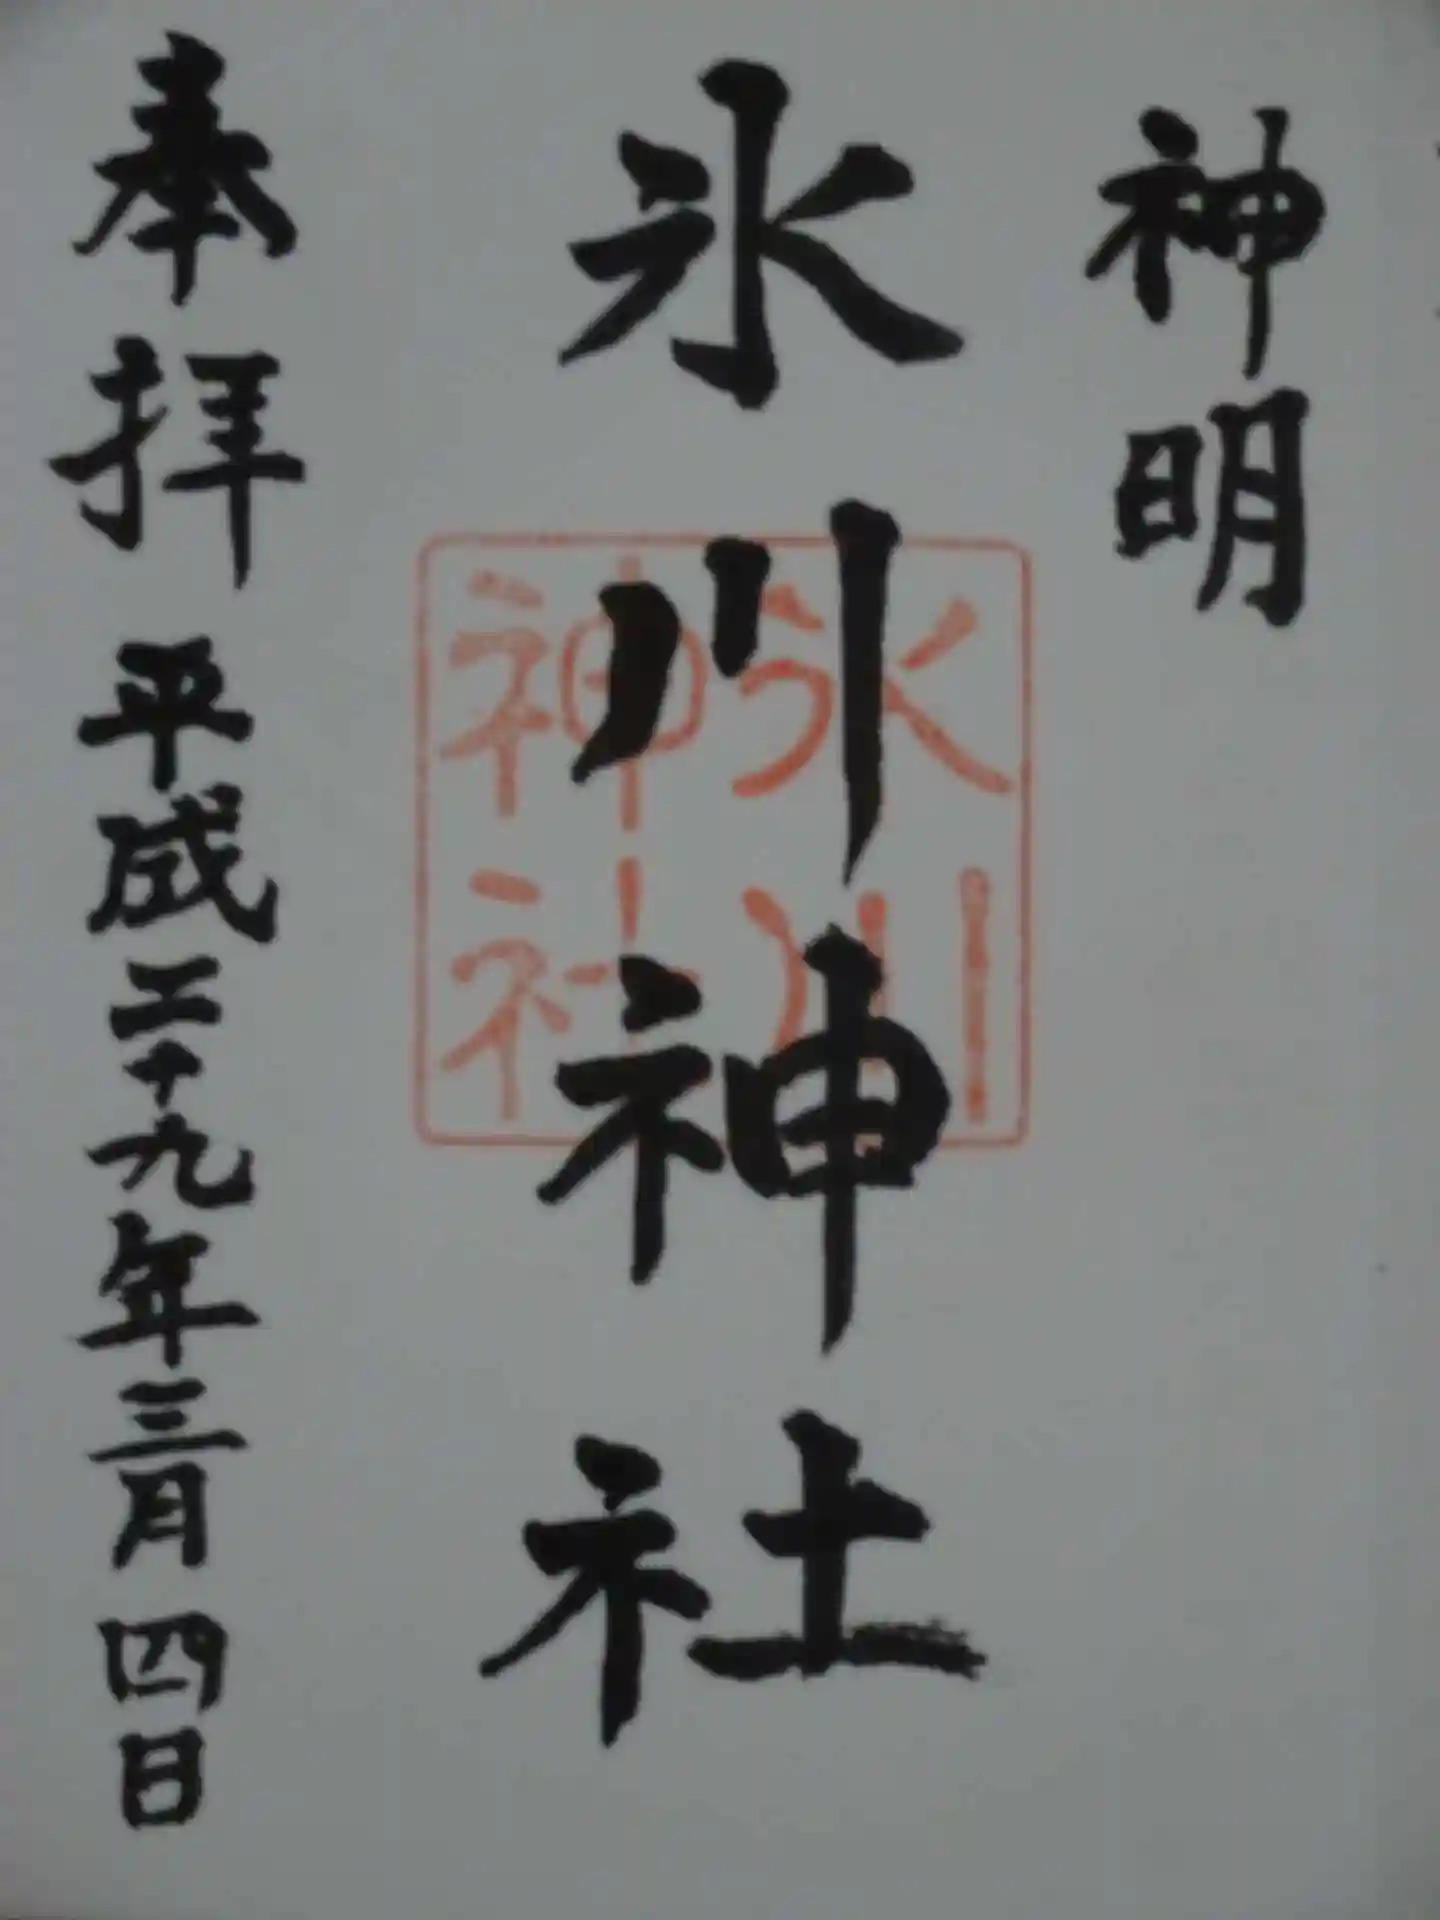 神明
氷川神社
氷川
神社
奉拝 平成二十九年三月四日